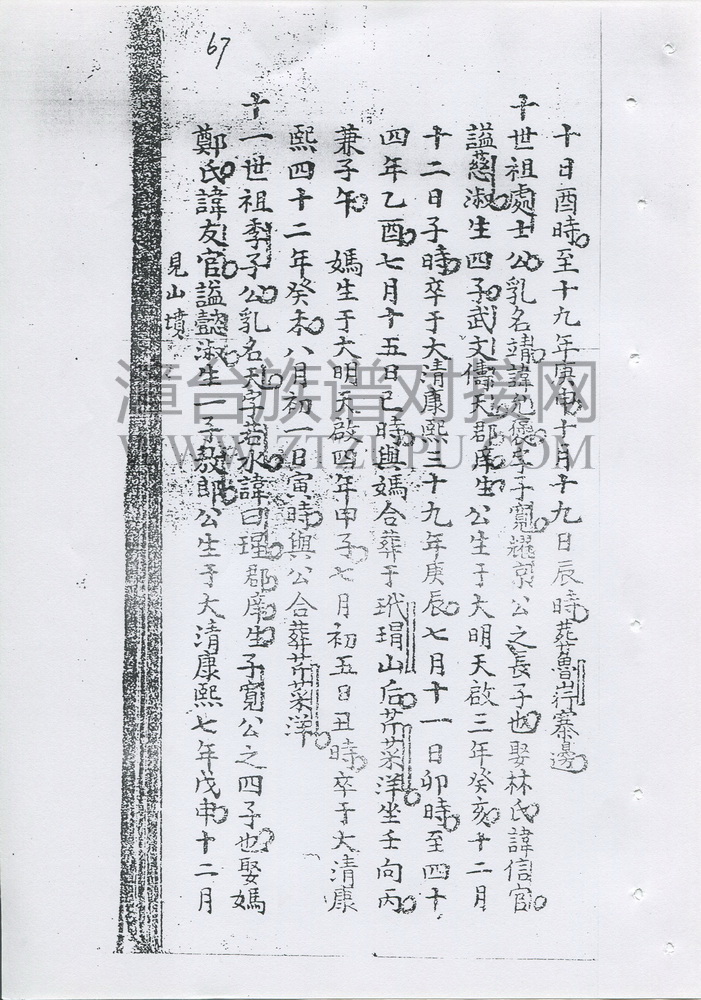 67
十日酉時至十九年庚申十月十九日辰時葬魯岸寨邊
十世祖處士公乳名靖諱 子寬耀京公之長子也娶林氏諱信官
謚慈淑生四子武文儔天郡庠生公生于大明天啟三年癸亥十二月
十二日子時卒于大清康熙三十九年庚辰七月十一日卯時至四十
四年乙酉七月十五日巳時與媽合葬于玳瑁山后芹菜洋坐壬向丙
兼子午 媽生于大明天啟四年甲子七月初五日丑時卒于大清康
熙四十二年癸未八月初一日寅時與公合葬芹菜洋
十一世祖季子公乳名天字若水諱曰瑆郡庠生子寬公之四子也娶媽
鄭氏諱友官謚懿淑生一子敎郎公生于大清康熙七年戊申十二月
見山墳
漳台族谱对接网
WWW.ZTZUPU.COM